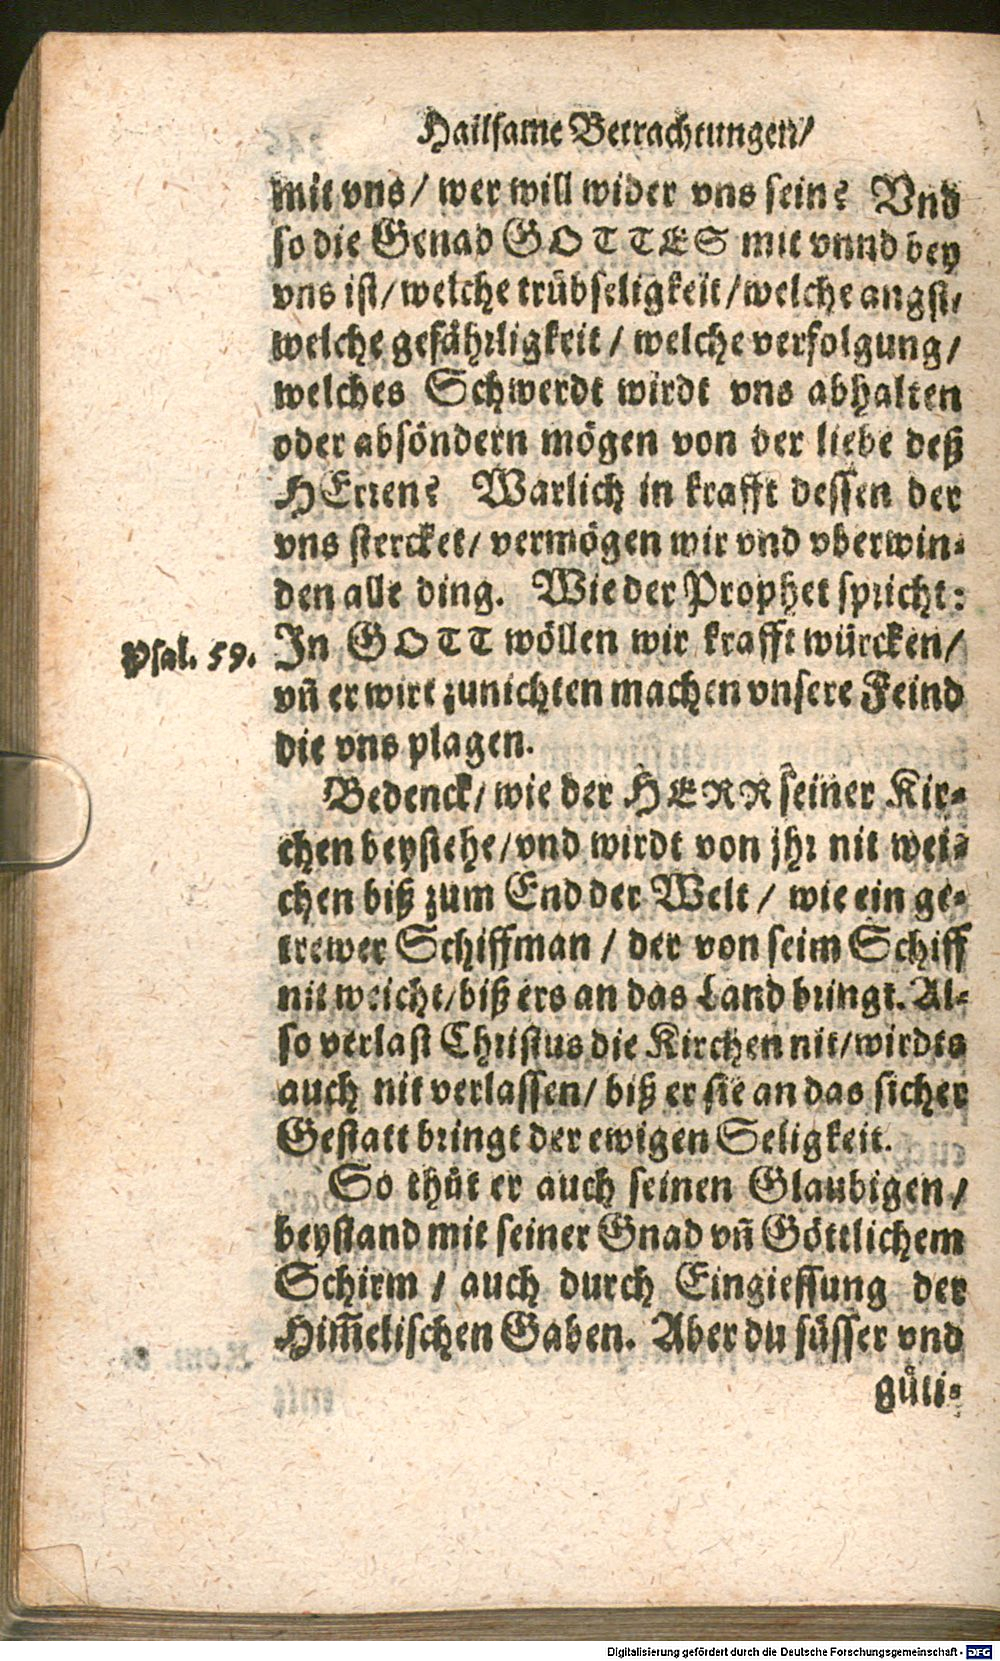 Hailsame Betrachtungen/
mit vns/ wer will wider vns sein? Vnd
so die Genad GOTTES mit vnnd bey
vns ist/ welche trübseligkeit/ welche angst/
welche gefährligkeit/ welche verfolgung/
welches Schwerdt wirdt vns abhalten
oder absöndern mögen von der liebe deß
HErren? Warlich in krafft dessen der
vns stercket/ vermögen wir vnd vberwin-
den alle ding. Wie der Prophet spricht:
Psal. 59. In GOTT wöllen wir krafft würcken/
vñ er wirt zunichten machen vnsere Feind
die vns plagen.
Bedenck/ wie der HERR seiner Kir-
chen beystehe/ vnd wirdt von jhr nit wei-
chen biß zum End der Welt/ wie ein ge-
trewer Schiffman/ der von seim Schiff
nit weicht/ biß ers an das Land bringt. Al-
so verlast Christus die Kirchen nit/ wirdts
auch nit verlassen/ biß er sie an das sicher
Gestatt bringt der ewigen Seligkeit.
So thůt er auch seinen Glaubigen/
beystand mit seiner Gnad vñ Göttlichem
Schirm/ auch durch Eingiessung der
Him̃elischen Gaben. Aber du süsser vnd
güti-
Digitalisierung gefördert durch die Deutsche Forschungsgemeinschaft - DFG